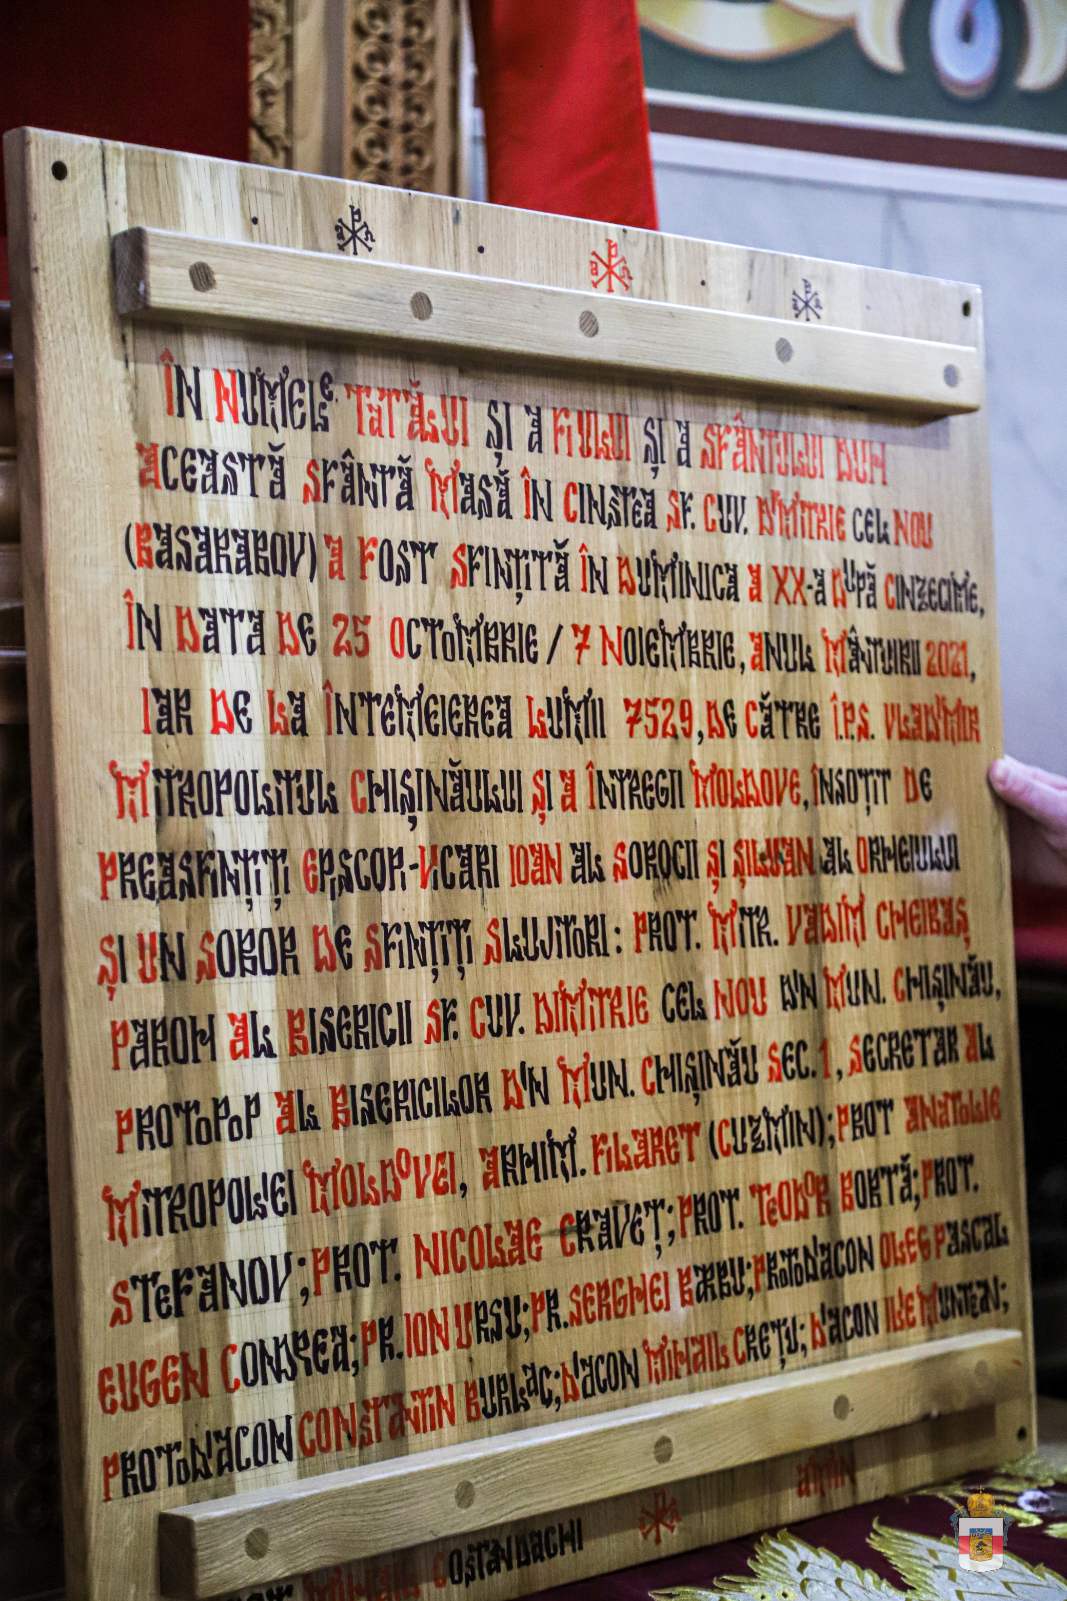 ÎN NUMELE TATĂLUI ȘI A FIULUI ȘI A SFÂNTULUI DUH
ACEASTĂ SFÂNTĂ MASĂ ÎN CINSTEA SF. CUV. DIMITRIE CEL NOU
(BASARABOV) A FOST SFINȚITĂ ÎN DUMINICA A XX-A DUPĂ CINZECIME,
ÎN DATA DE 25 OCTOMBRIE / 7 NOIEMBRIE, ANUL MÂNTUIRII 2021,
IAR DE LA ÎNTEMEIEREA LUMII 7529, DE CĂTRE Î.P.S. VLADIMIR
MITROPOLITUL CHIȘINĂULUI ȘI A ÎNTREGII MOLDOVE, ÎNSOȚIT DE
PREASFINȚIȚI EPISCOPI-VICARI IOAN AL SOROCII ȘI SILUAN AL ORHEIULUI
ȘI UN SOBOR DE SFINȚIȚI SLUJITORI: PROT. MITR. VADIM CHEIBAȘ
PAROH AL BISERICII SF. CUV. DIMITRIE CEL NOU DIN MUN. CHIȘINĂU,
PROTOPOP AL BISERICILOR DIN MUN. CHIȘINĂU SEC. 1, SECRETAR AL
MITROPOLIEI MOLDOVEI, ARHIM. FILARET (CUZMIN); PROT ANATOLIE
STEFANOV; PROT. NICOLAE CRAVEȚ; PROT. TEODOR BORTĂ; PROT.
EUGEN CONDREA; PR. ION URSU; PR. SERGHEI BARBU; PROTODIACON OLEG PASCAL
PROTODIACON CONSTANTIN BURLAC; DIACON MIHAIL CREȚU; DIACON ILIE MUNTEAN;
MIHAIL COSTANDACHI
AMIN